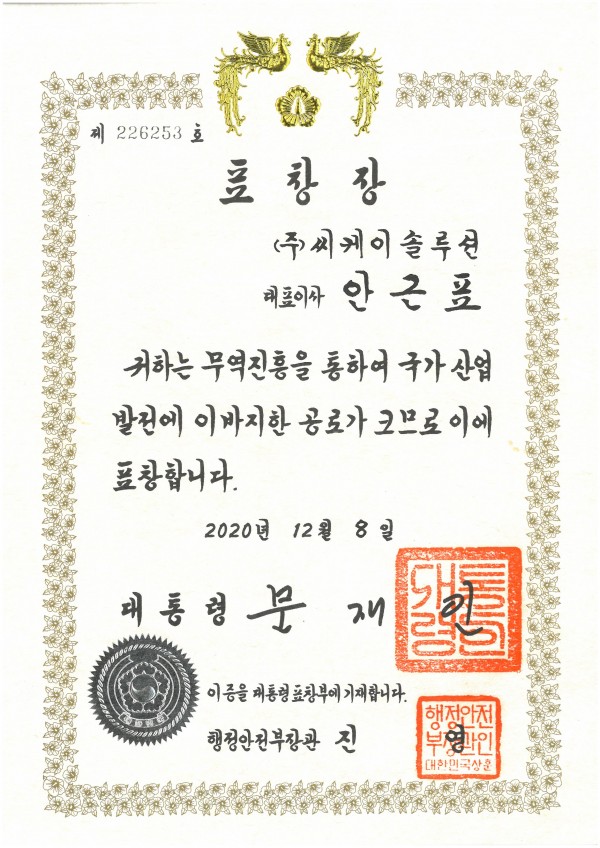 제 226253 호
표창장
(주)씨케이솔루션
대표이사 안근표
귀하는 무역진흥을 통하여 국가 산업
발전에 이바지한 공로가 크므로 이에
표창합니다.
2020년 12월 8일
대통령 문재인
대통령의인
이 증을 대통령표창부에 기재합니다.
행정안전부장관 진영
행정안전
부장관인
대한민국상훈